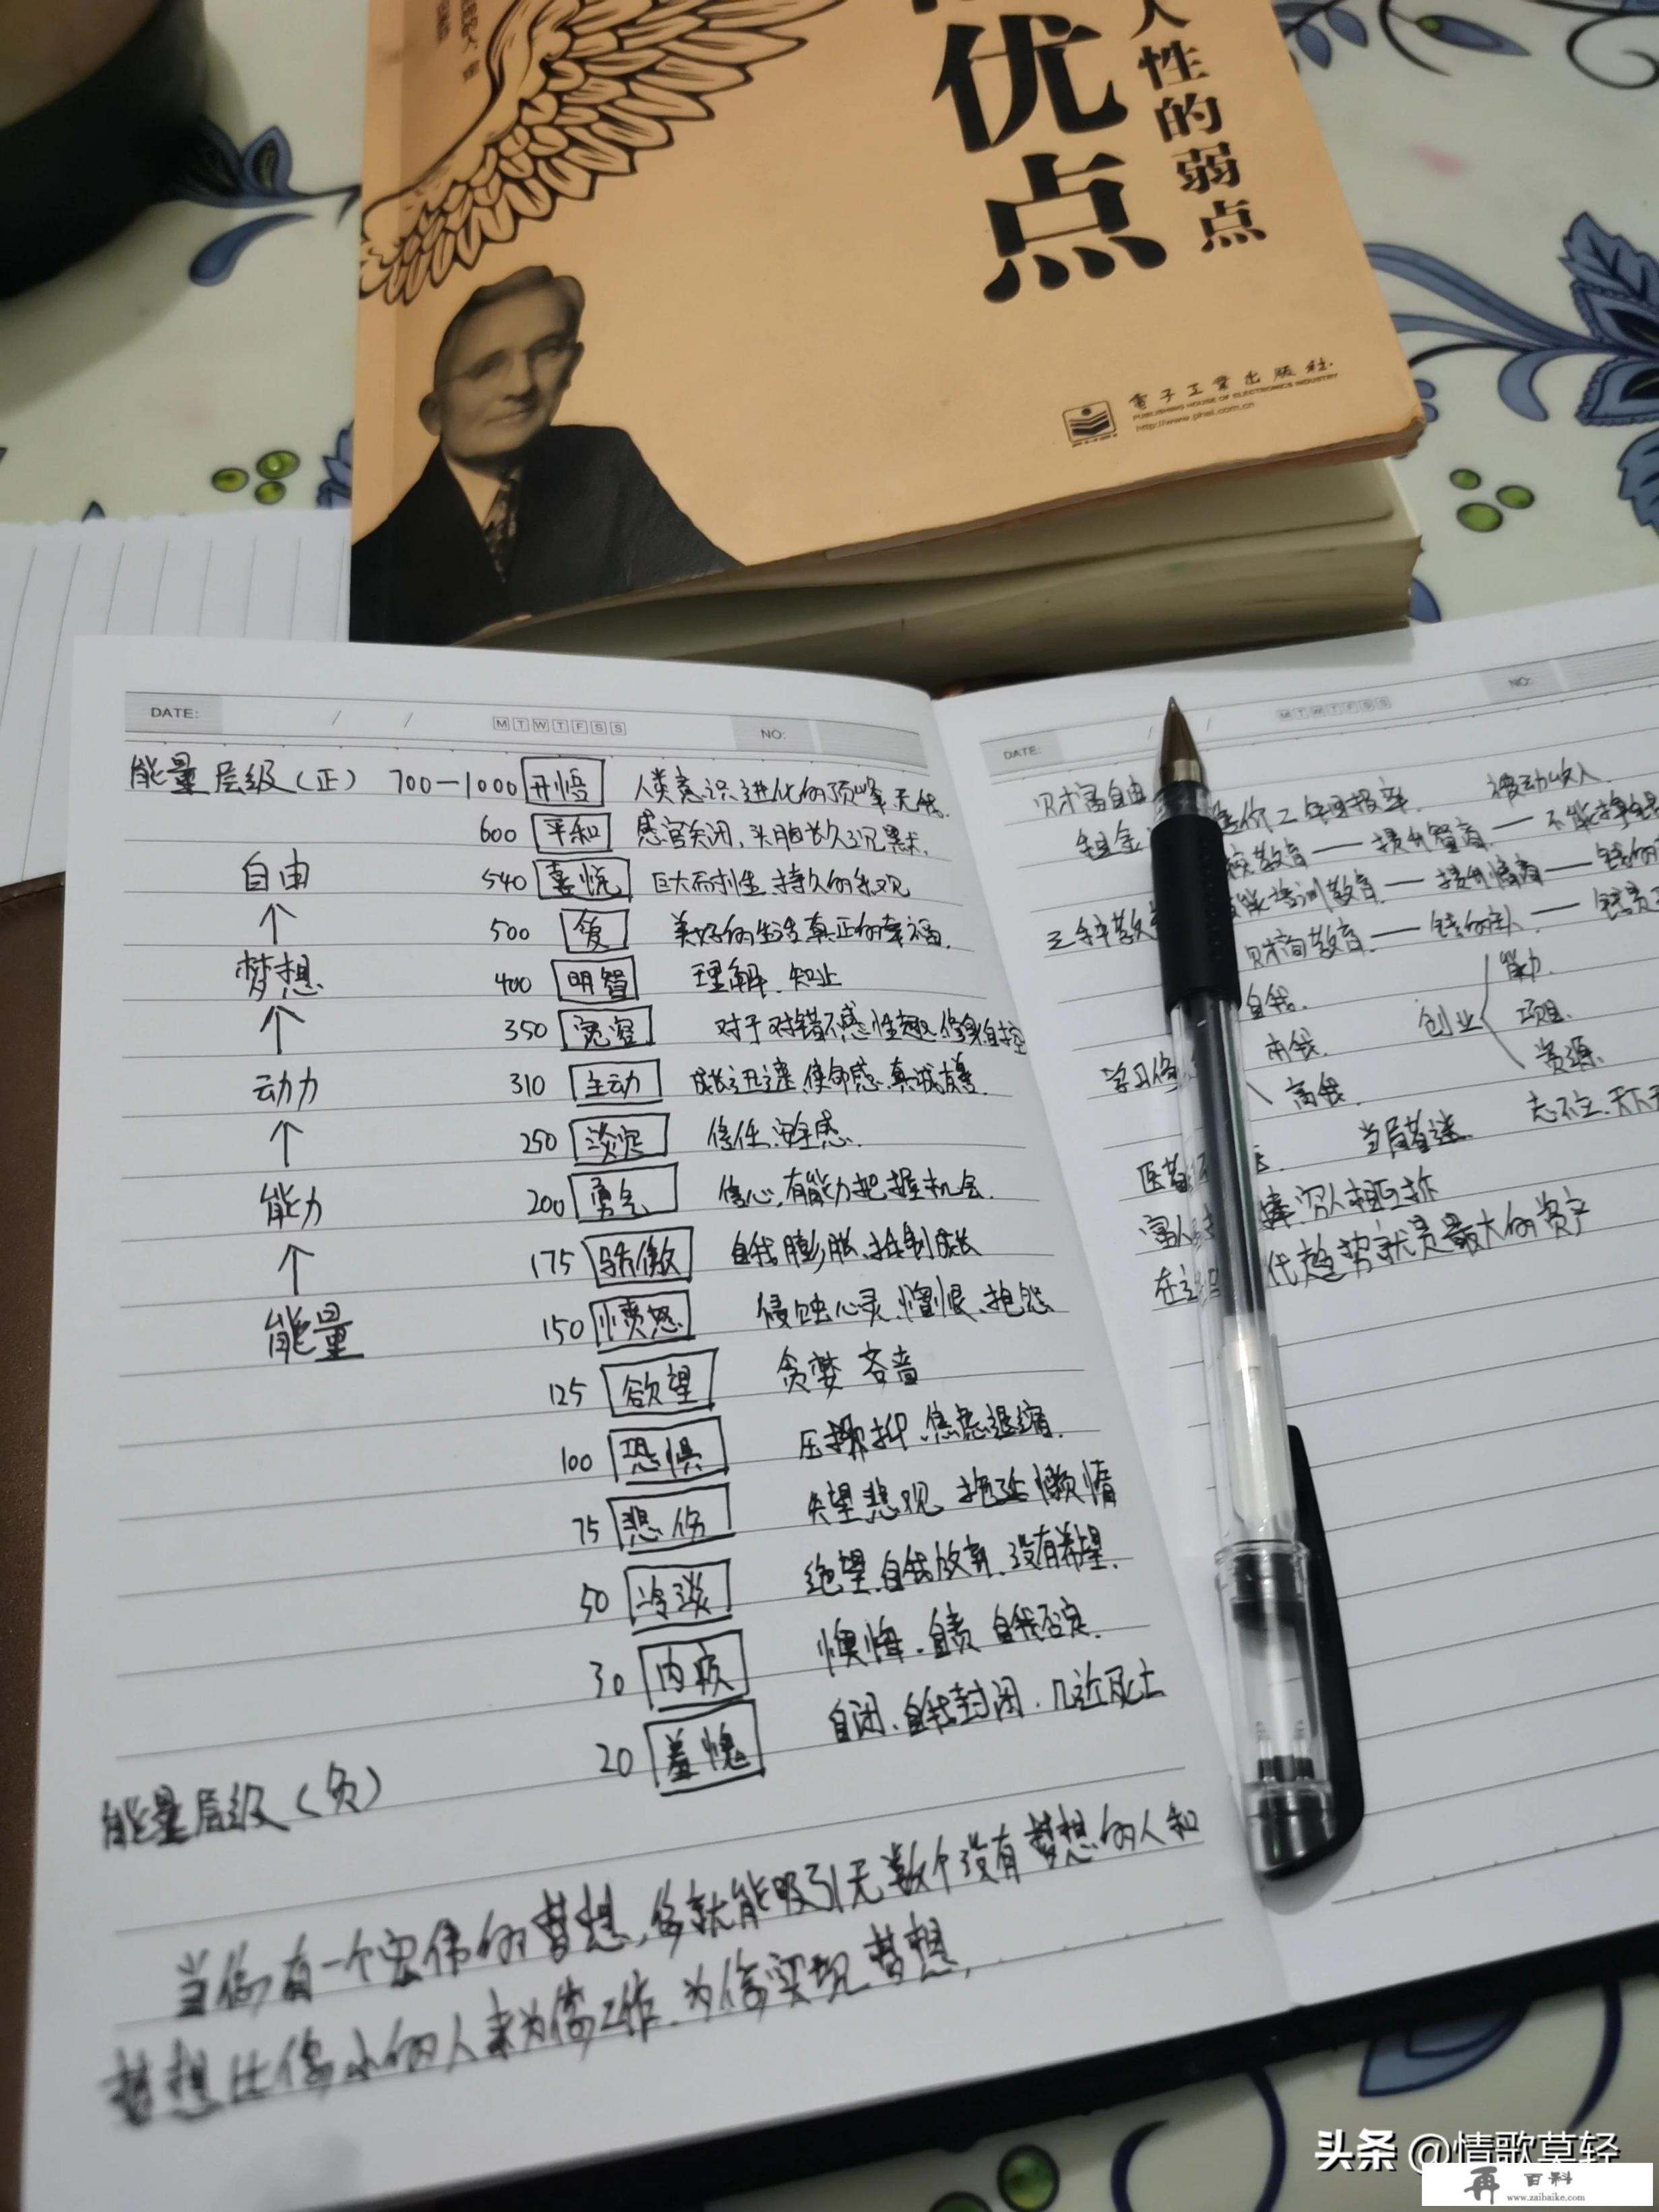 优点
人性的弱点
電子工業出版社
PUBLISHING HOUSE OF ELECTRONICS INDUSTRY
http://www.phei.com.cn
DATE: / / M T W T F S S NO:
能量层级(正) 700—1000 开悟 人类意识进化的顶峰,无我.
600 平和 感官关闭,头脑长久沉默.
自由 540 喜悦 巨大耐性,持久的乐观
↑ 500 爱 美好的生活,真正的幸福.
梦想 400 明智 理解、知止
↑ 350 宽容 对于对错不感性趣,修身自控
动力 310 主动 成长迅速,使命感,真诚友善.
↑ 250 淡定 信任,安全感.
能力 200 勇气 信心,有能力把握机会.
↑ 175 骄傲 自我膨胀,抵制成长
能量 150 愤怒 侵蚀心灵,憎恨、抱怨
125 欲望 贪婪 吝啬
100 恐惧 压抑、焦虑退缩.
75 悲伤 失望悲观 拖延懒惰
50 冷淡 绝望,自我放弃,没有希望.
30 内疚 懊悔.自责 自我否定.
20 羞愧 自闭、自我封闭.几近死亡
能量层级(负)
当你有一个宏伟的梦想,你就能吸引无数个没有梦想的人和
梦想比你小的人来为你工作.为你实现梦想,
DATE: / M T W T F S S NO:
财富自由 被动收入
租金 年回报率.
教育 — 提升智商 — 不能挣钱
三种教 培训教育 — 提升情商 —
财商教育 —
自我. 能力.
本我. 创业 项目.
学习 高我. 资源.
当局者迷 志不立.天下无
医者
富人 穷人相互拆
在 代趋势就是最大的资产
头条 @情歌莫轻
再百科
www.zaibaike.com